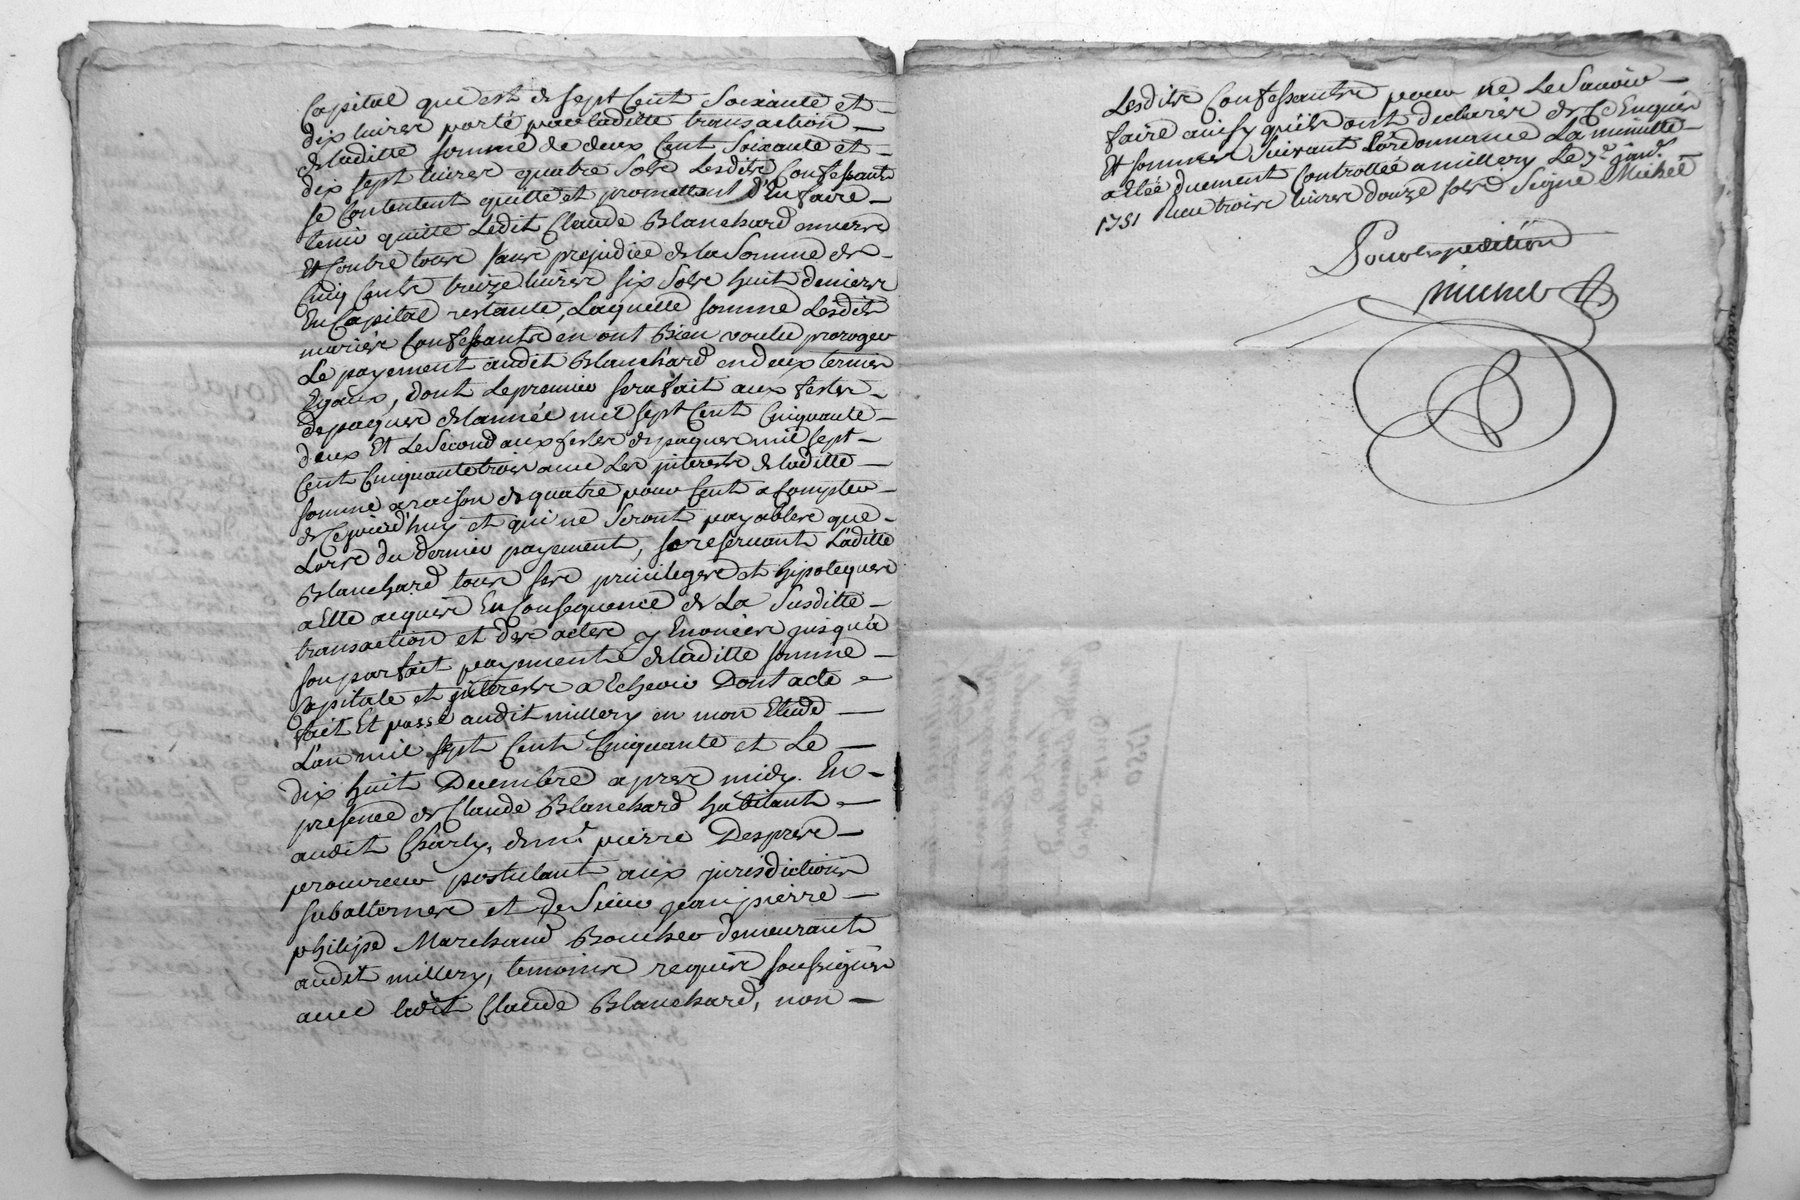 Capital qui est de sept Cent Soixante et
dix livres porté par laditte transaction
de laditte somme de deux Cent Soixante et
dix sept livres quatre Sols Lesdits Confessants
se Contentent quitte et promettent d'En faire
tenir quitte Ledit Claude Blanchard envers
Et Contre tous sans prejudice de la Somme de
Cinq Cents treize livres six Sols huit deniers
En Capital restante, Laquelle somme Lesdits
mariés Confessants en ont Bien voulu proroger
Le payement audit Blanchard en deux termes
Egaux, dont Le premier sera fait aux festes
de paques de lannée mil sept Cent Cinquante
deux Et Le Second aux festes de paques mil sept
Cent Cinquante trois avec Les jnterests de laditte
somme a raison de quatre pour Cent a Compter
de Cejourd'huy et qui ne Seront payables que
Lors du dernier payement, se reservant Laditte
Blanchard tous ses privileges et hipoteques
a Elle acquis En Consequence de La Susditte
transaction et des actes y Enoncés jusqu'a
son parfait payement de laditte somme
Capitale et jnterests a Echeoir Dont acte
fait Et passé audit millery en mon Etude
L'an mil sept Cent Cinquante et Le
dix huit Decembre apres midy. En
presence de Claude Blanchard habitant
audit Charly, de mr pierre Despres
procureur postulant aux jurisdictions
subalternes et de Sieur jean pierre
philipe Marchand Boucher demeurant
audit millery, temoins requis soussignés
avec ledit Claude Blanchard, non
Lesdits Confessants pour ne Le Savoir
faire ainsy qu'ils ont declarés de Ce Enquis
Et sommés Suivant L'ordonnance La minutte
a Eté duement Controllée a millery Le 3e janv.
1751 Reçu trois livres douze sols Signé Michel
Pour Expedition
Michel
1750